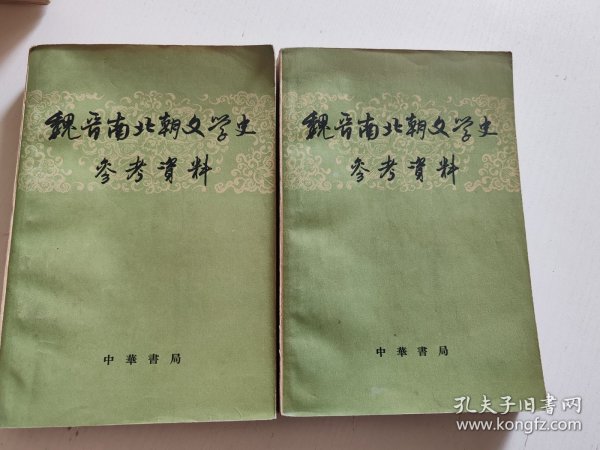 魏晋南北朝文学史
参考資料
中華書局
魏晋南北朝文学史
参考資料
中華書局
孔夫子旧书网
www.kongfz.com